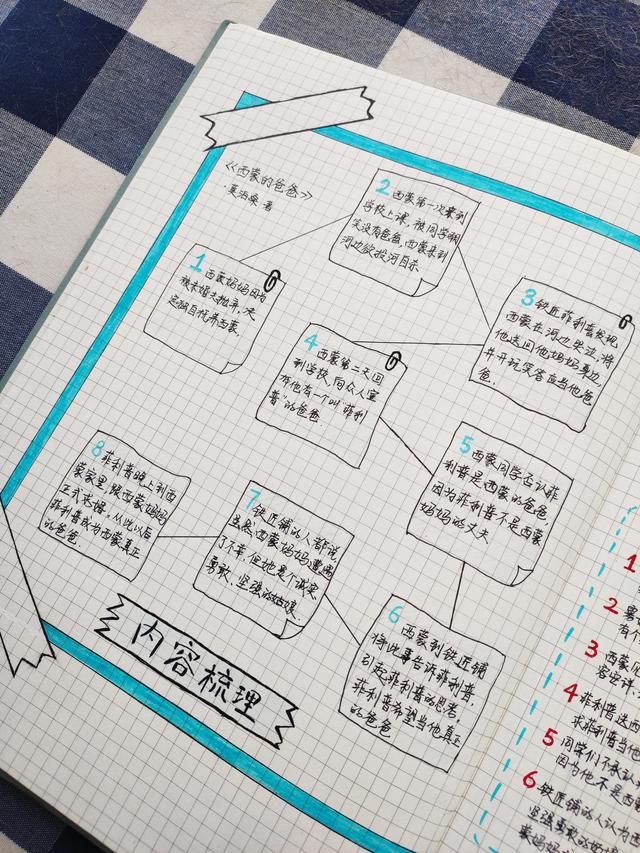 《西蒙的爸爸》
·莫泊桑 著
1 西蒙妈妈因为
被未婚夫抛弃，决
定独自抚养西蒙。
2 西蒙第一次来到
学校上课，被同学嘲
笑没有爸爸，西蒙来到
河边欲投河自杀
3 铁匠菲利普发现
西蒙在河边哭泣，将
他送回他妈妈身边，
并开玩笑答应当他爸
爸。
4 西蒙第二天回
到学校，向众人宣
称他有一个叫"菲利
普"的爸爸
5 西蒙同学否认菲
利普是西蒙的爸爸，
因为菲利普不是西蒙
妈妈的丈夫
6 西蒙到铁匠铺
将此事告诉菲利普，
引起菲利普的思考，
菲利普希望当他真正
的爸爸
7 铁匠铺的人都说
虽然西蒙妈妈遭遇
了不幸，但她是个诚实、
勇敢、坚强的姑娘
8 菲利普晚上到西
蒙家里，跟西蒙妈妈
正式求婚，从此以后
菲利普成为西蒙真正
的爸爸。
内容梳理
1
2
有
3 西蒙
4 菲利普送西
求菲利普当他
5 同学们不承认
因为他不是西
6 铁匠铺的人认为西
坚强勇敢的好